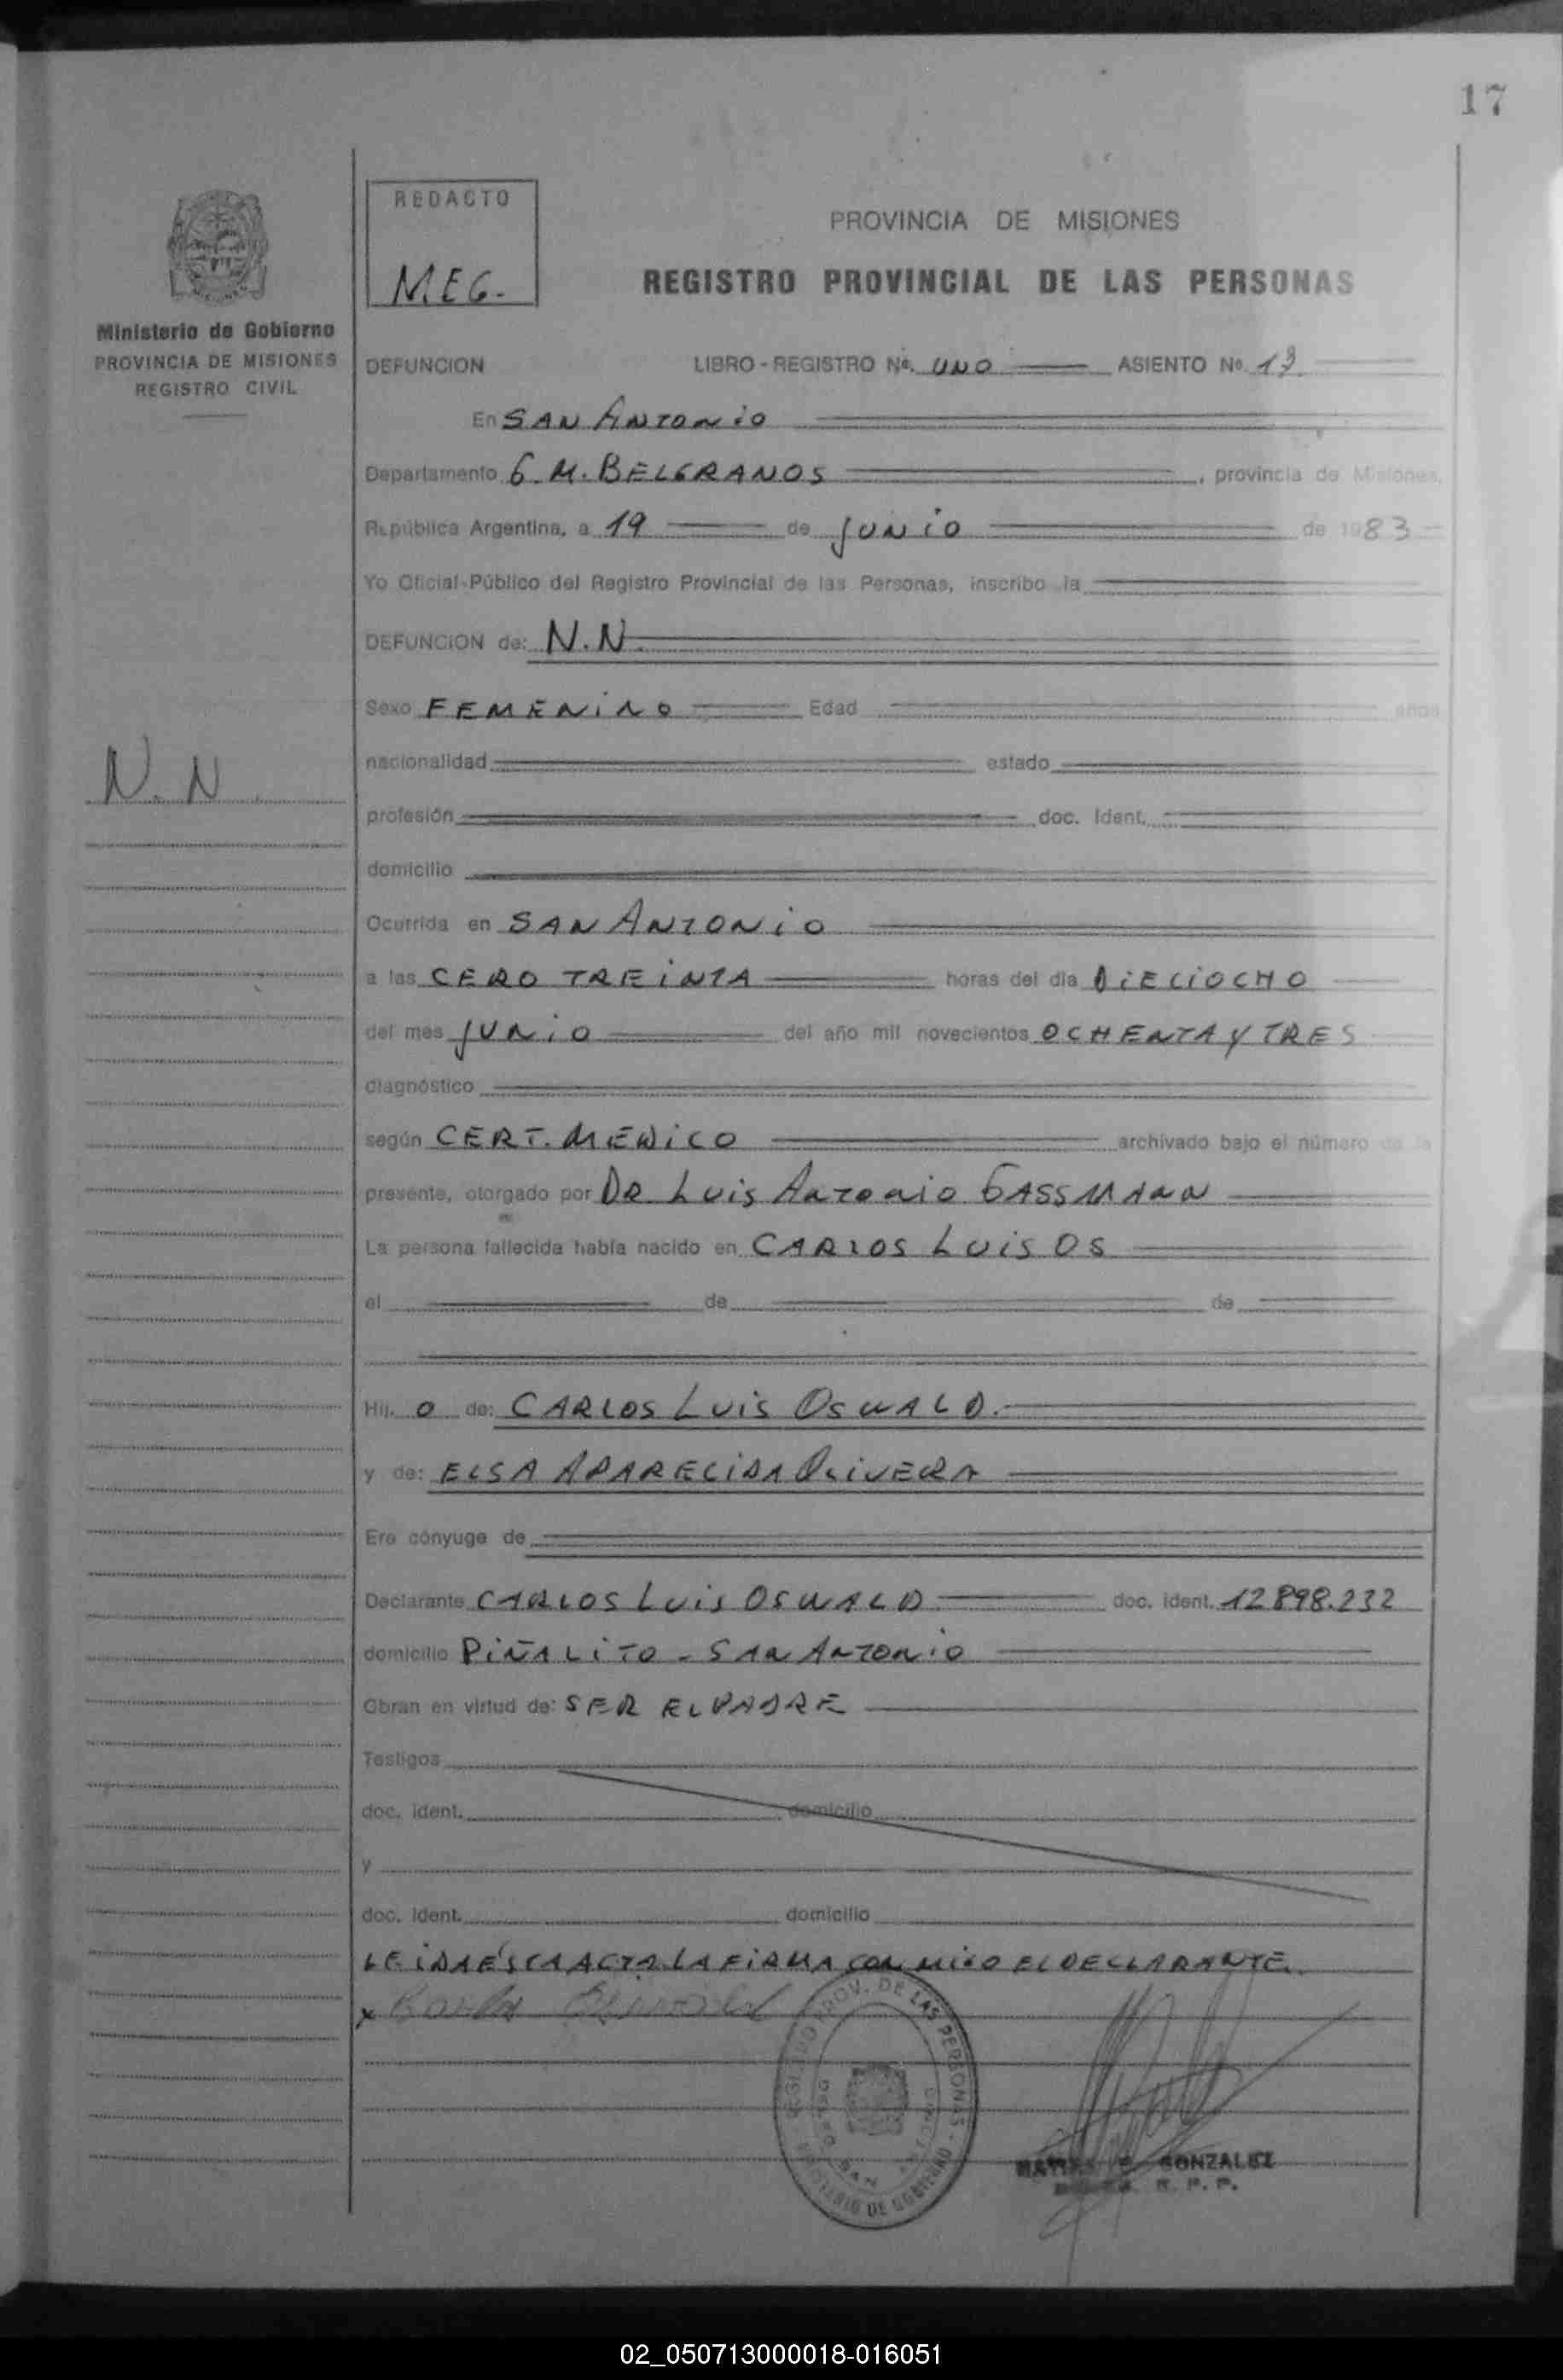 17
REDACTO
M.E.G.
PROVINCIA DE MISIONES
REGISTRO PROVINCIAL DE LAS PERSONAS
Ministerio de Gobierno
PROVINCIA DE MISIONES
REGISTRO CIVIL
DEFUNCION LIBRO - REGISTRO No. UNO ASIENTO No 13
En SAN ANTONIO
Departamento G. M. BELGRANOS, provincia de Misiones,
República Argentina, a 19 de JUNIO de 1983
Yo Oficial Público del Registro Provincial de las Personas, inscribo la
DEFUNCION de: N.N.
Sexo FEMENINO Edad años
N. N.
nacionalidad estado
profesión doc. ident.
domicilio
Ocurrida en SAN ANTONIO
a las CERO TREINTA horas del día DIECIOCHO
del mes JUNIO del año mil novecientos OCHENTA Y TRES
diagnóstico
según CERT. MEDICO archivado bajo el número de la
presente, otorgado por DR LUIS ANTONIO GASSMANN
La persona fallecida había nacido en CARLOS LUIS OS
el de de
Hij. O de: CARLOS LUIS OSWALD.
y de: ELSA APARECIDA OLIVERA
Era cónyuge de
Declarante CARLOS LUIS OSWALD doc. ident. 12898.232
domicilio PIÑALITO - SAN ANTONIO
Obran en virtud de: SER EL PADRE
Testigos
doc. ident. domicilio
y
doc. ident. domicilio
LEIDA ESTA ACTA LA FIRMA CON MIGO EL DECLARANTE.
x
REGISTRO PROV. DE LAS PERSONAS - MINISTERIO DE GOBIERNO
GONZALEZ
R. P. P.
02_050713000018-016051